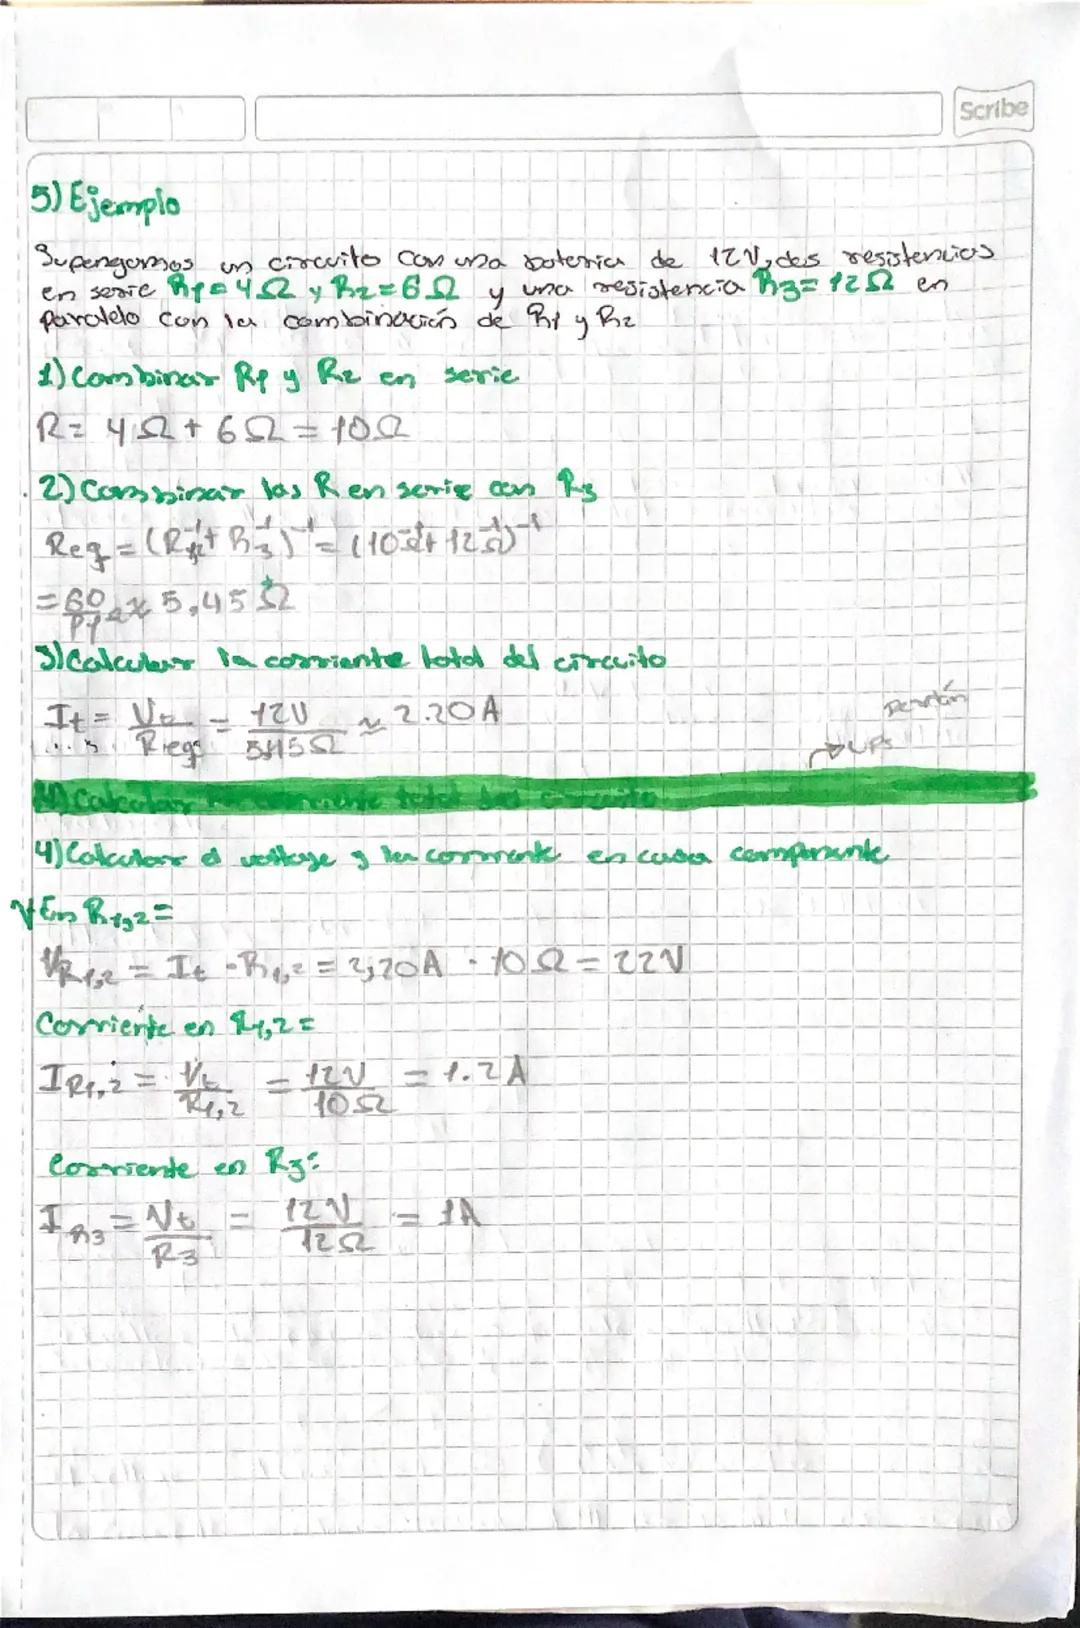 Scribe
5) Ejemplo
Supongamos un circuito con una bateria de 12V, dos resistencias
en serie R1=4Ω y R2=6Ω y una resistencia R3=12Ω en
paralelo con la combinación de R1 y R2
1) Combinar R1 y R2 en serie
R= 4Ω + 6Ω = 10Ω
2) Combinar las R en serie con R3
Req = (R12⁻¹ + R3⁻¹)⁻¹ = (10Ω⁻¹ + 12Ω⁻¹)⁻¹
= 60/11 Ω ≈ 5,45Ω
3) Calcular la corriente total del circuito
It = Vt/Req = 12V/5,45Ω ≈ 2.20A
→ UPS
4) Calcular la corriente total del circuito
4) Calcular el voltaje y la corriente en cada componente
V En R1,2=
VR1,2 = It · R1,2 = 2,20A · 10Ω = 22V
Corriente en R1,2=
IR1,2 = Vt/R1,2 = 12V/10Ω = 1.2A
Corriente en R3:
IR3 = Vt/R3 = 12V/12Ω = 1A